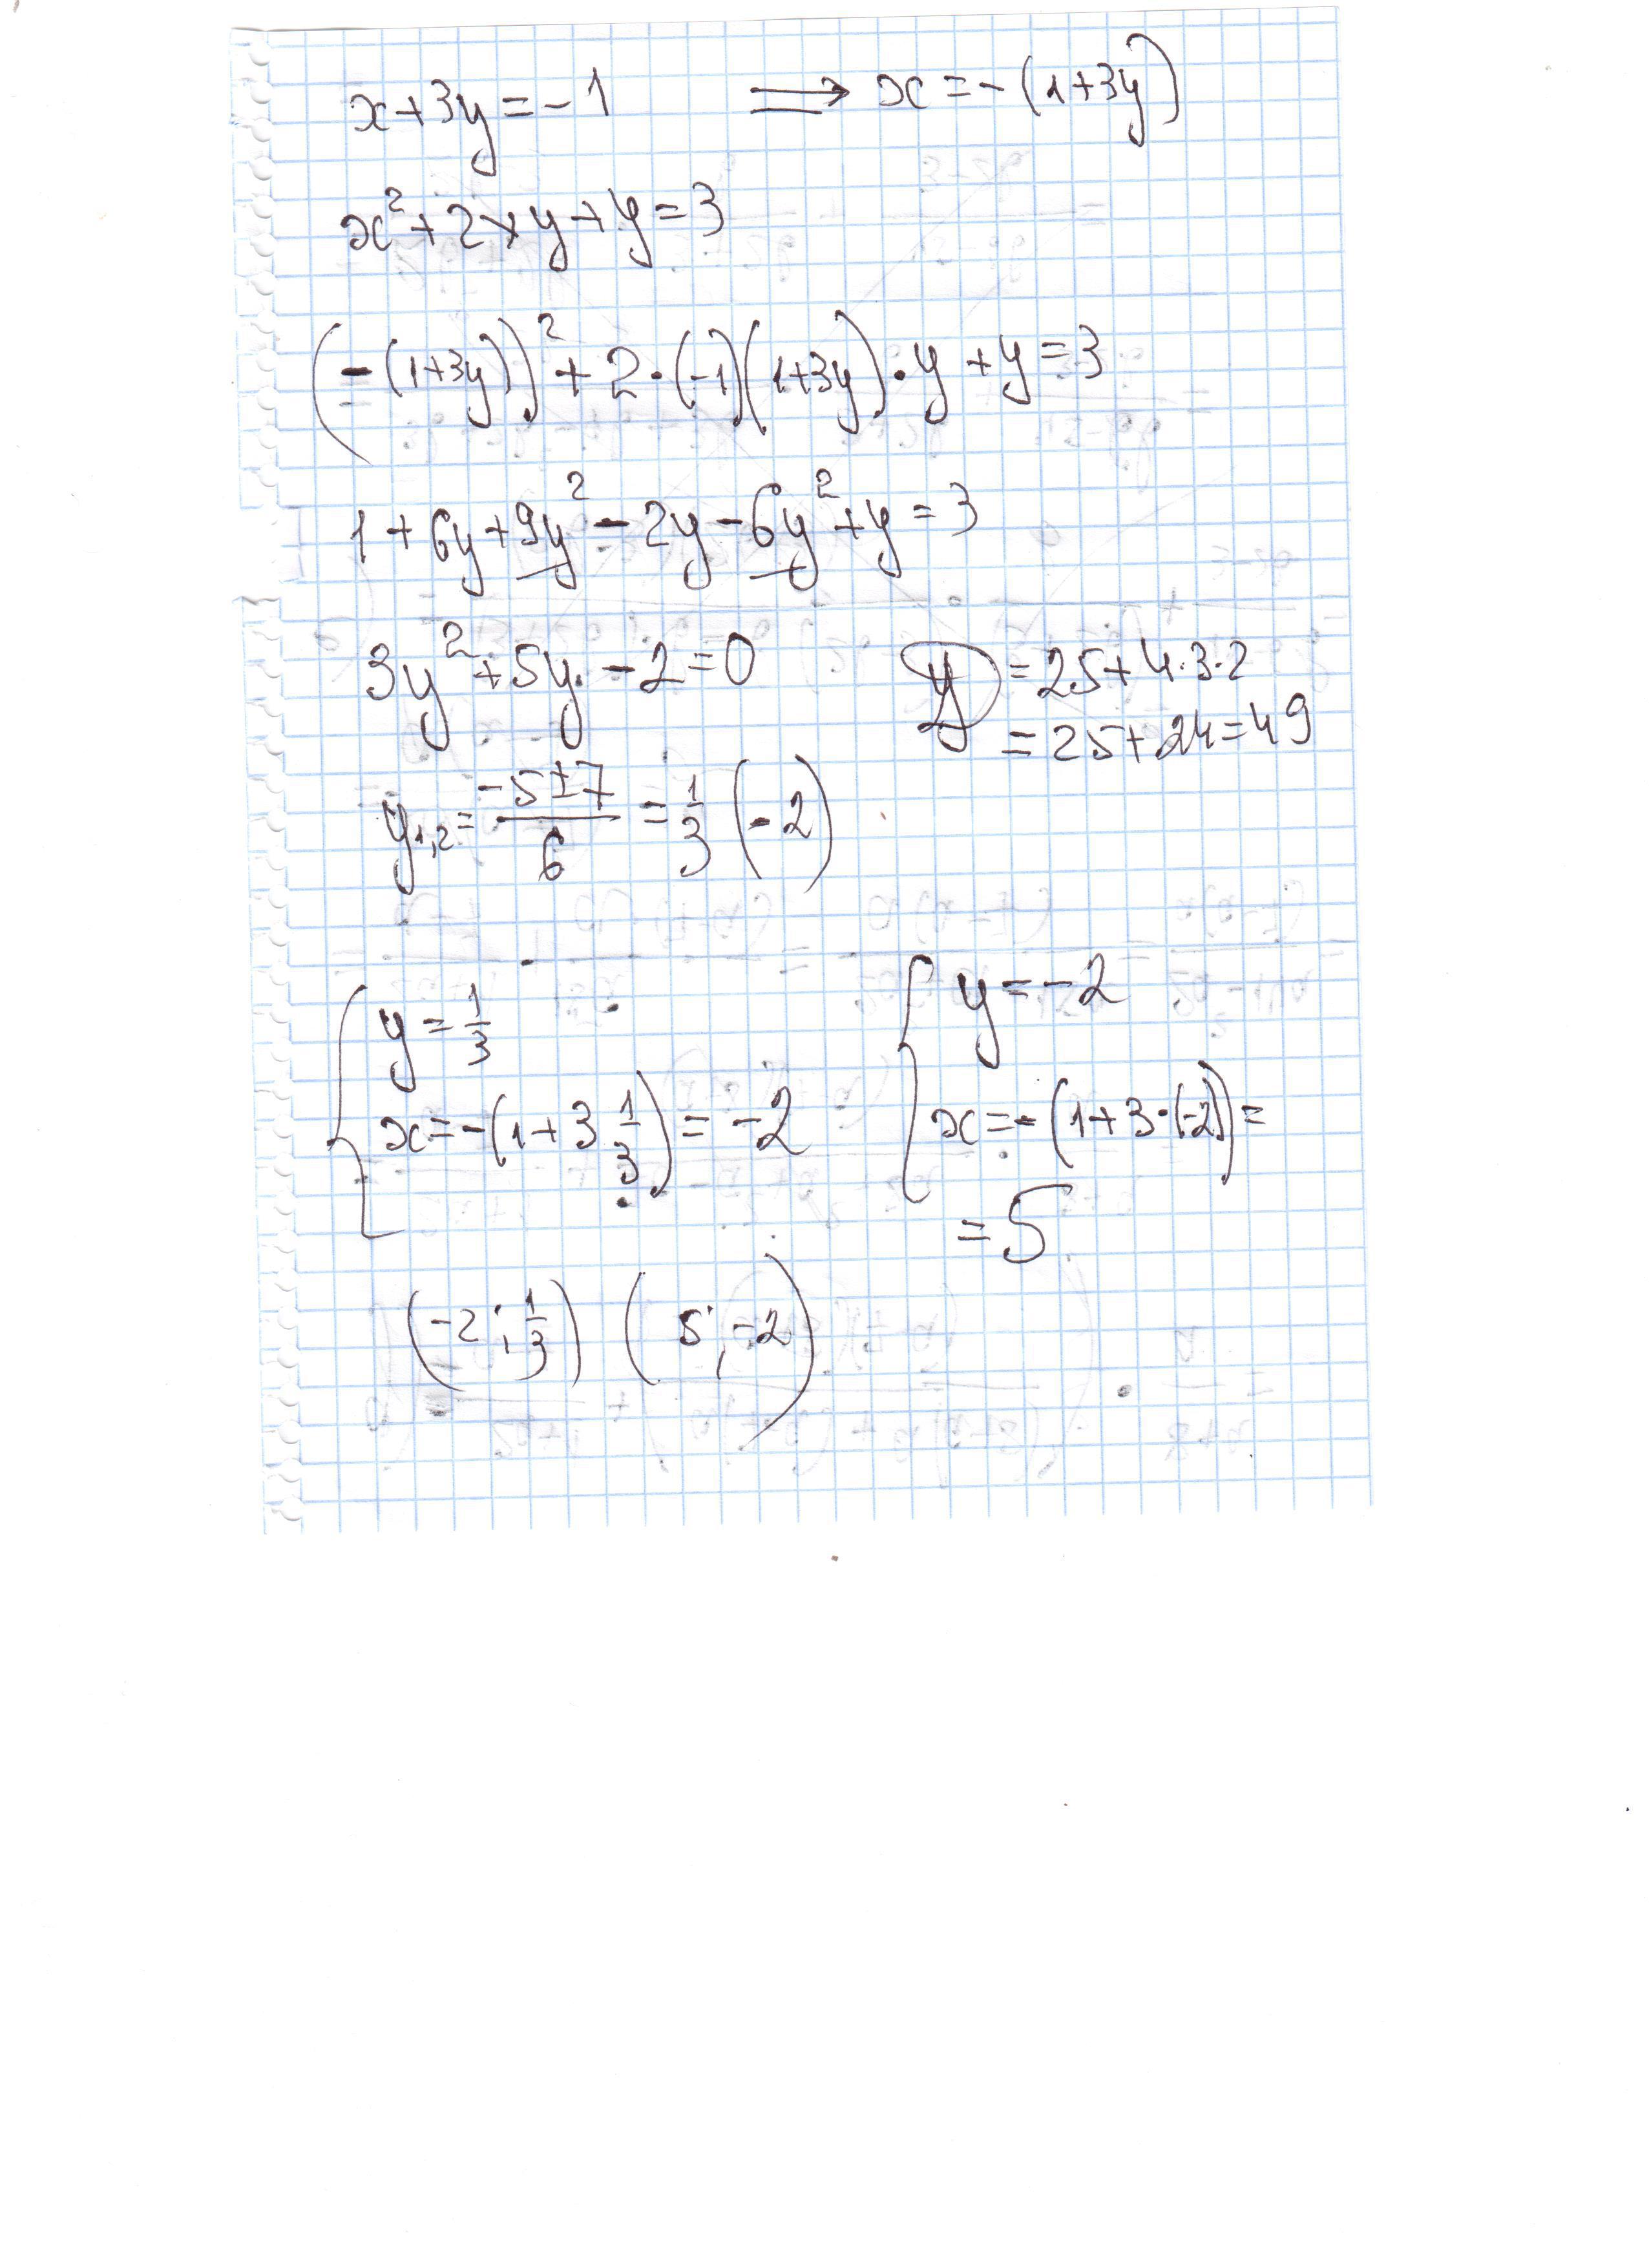 x+3y=-1 ⟹ x=-(1+3y)
x²+2xy+y=3
(-(1+3y))²+2·(-1)(1+3y)·y+y=3
1+6y+9y²-2y-6y²+y=3
3y²+5y-2=0 D=25+4·3·2
=25+24=49
y1,2=(-5±7)/6=1/3 (-2)
{ y=1/3 { y=-2
x=-(1+3 1/3)=-2 x=-(1+3·(-2))=
=5
(-2; 1/3) (5; -2)